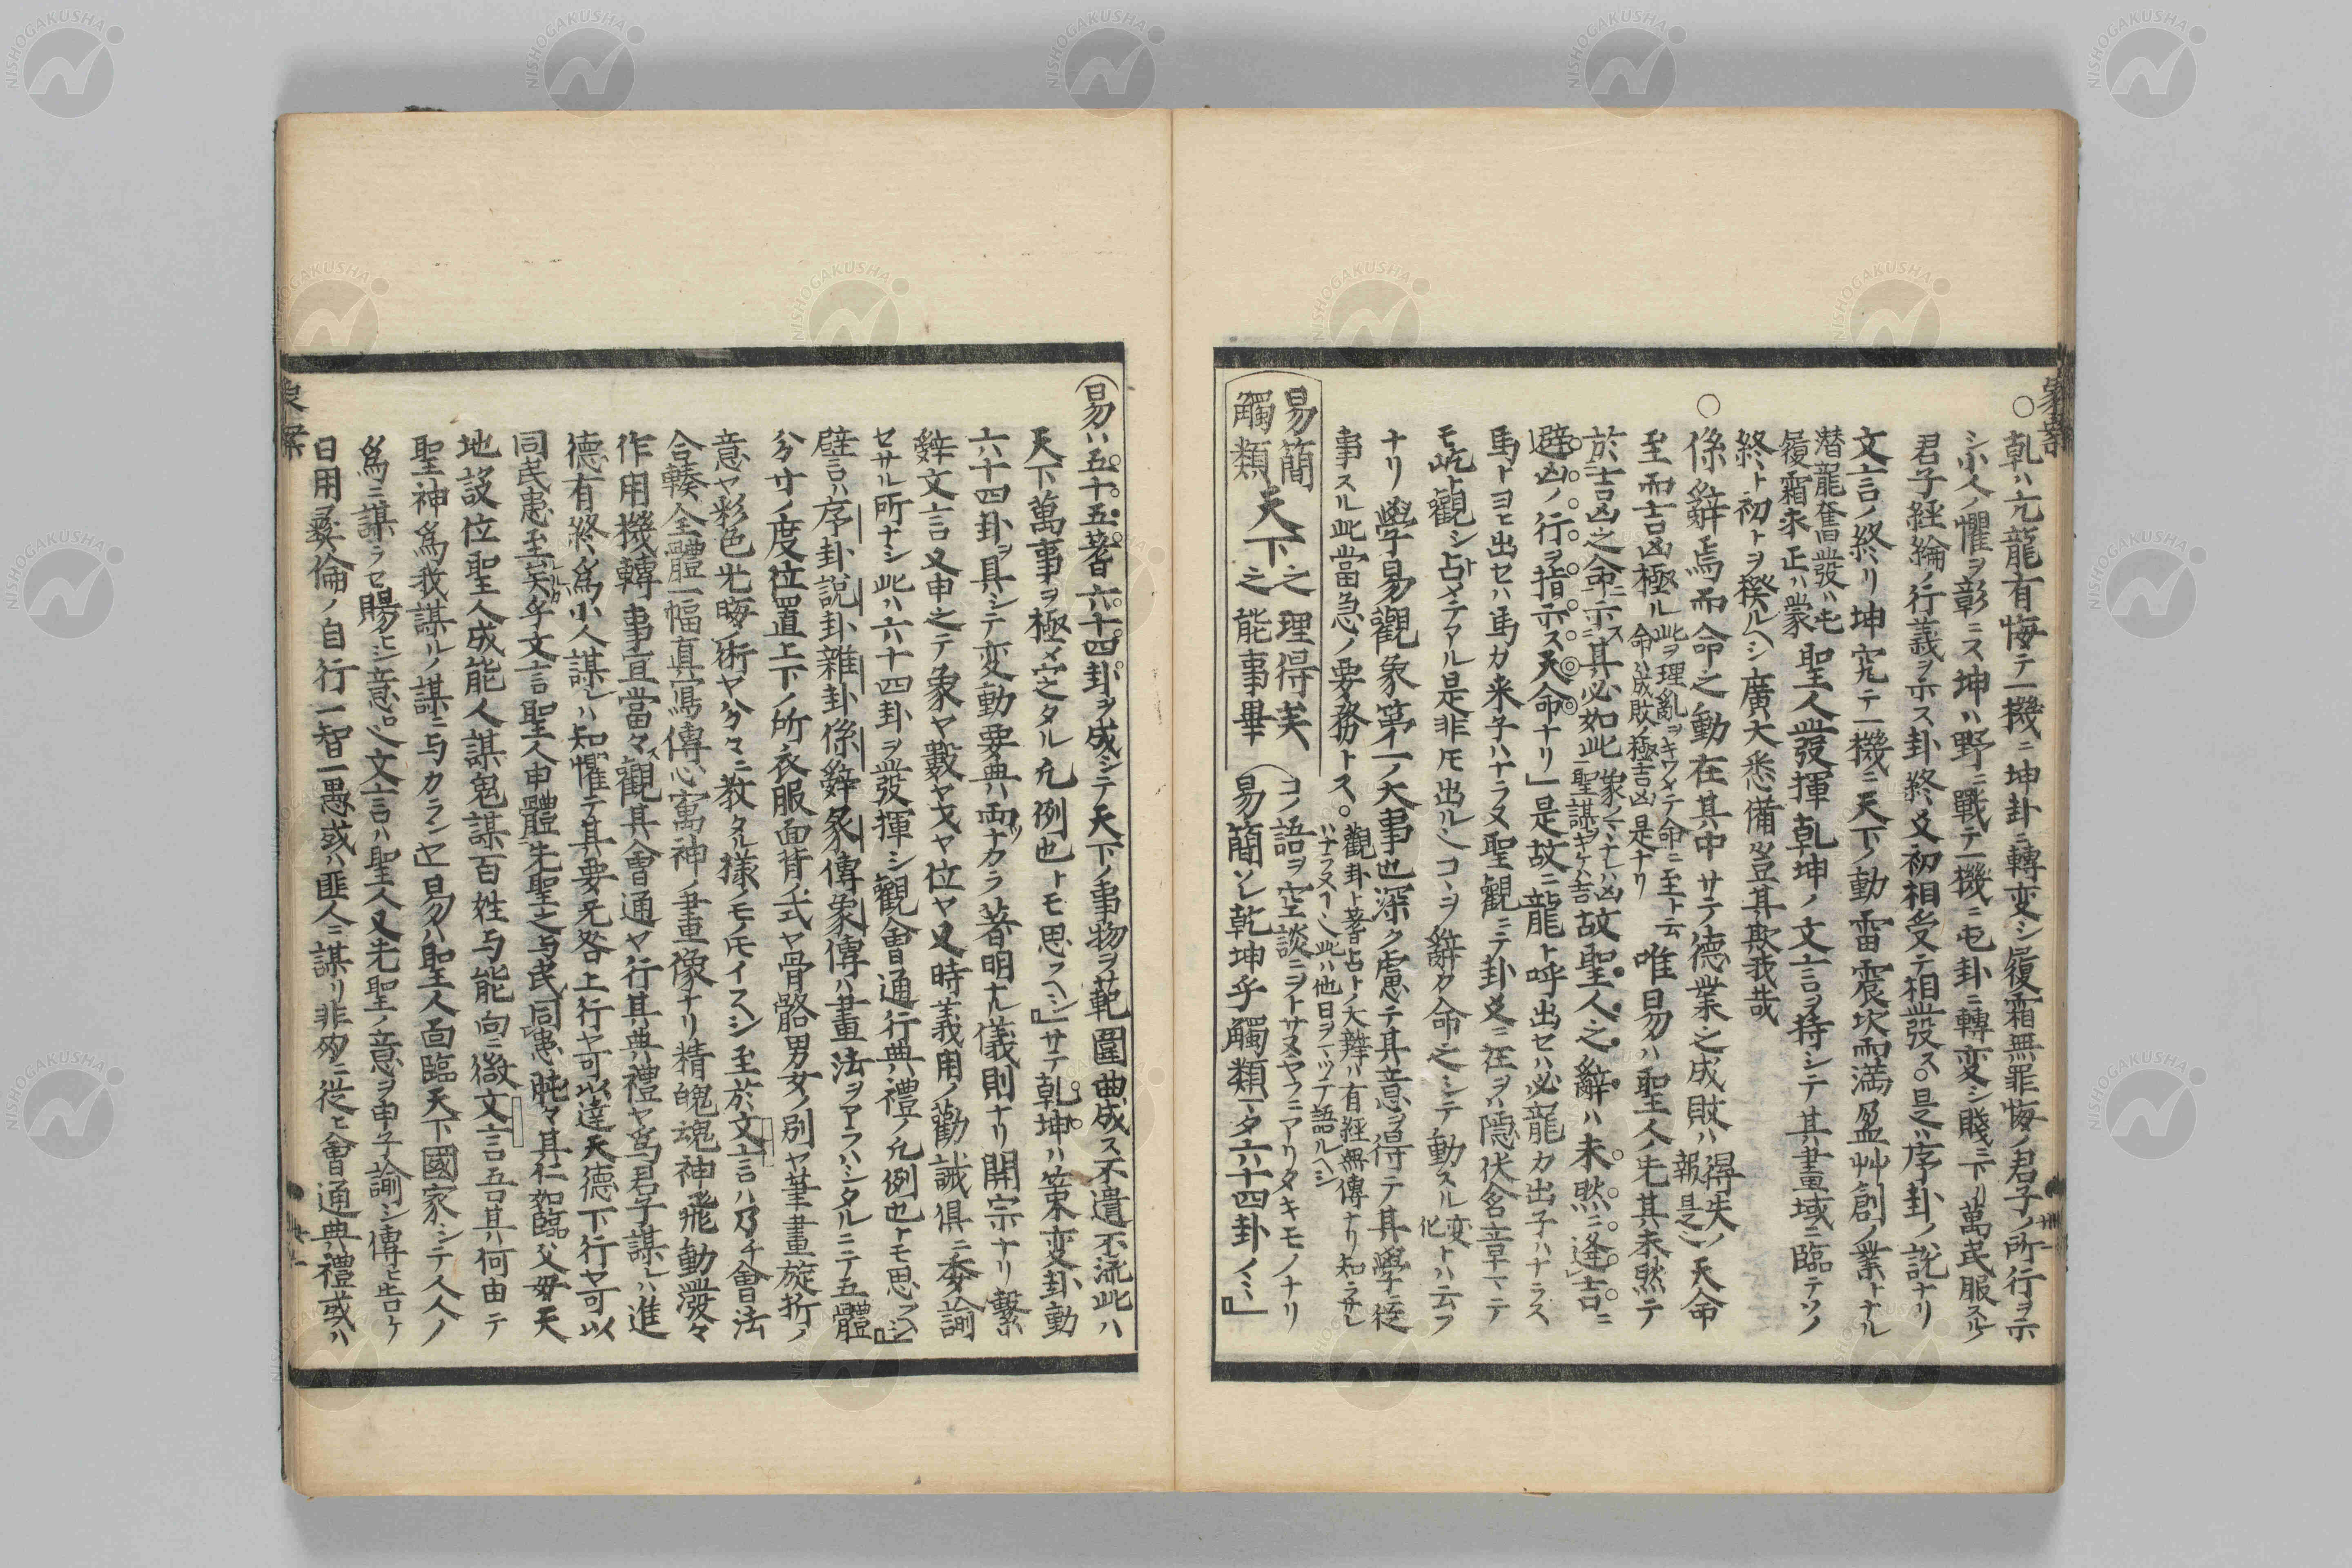 ○乾ハ亢龍有悔テ一機ニ坤卦ニ轉変シ履霜無罪悔ノ君子ノ所行ヲ示
シ小人ノ懼ヲ彰ニス坤ハ野ニ戰テ一機ニ屯卦ニ轉変シ賤ニ下リ萬民服スル
君子経綸ノ行義ヲ示ス卦終爻初相受テ相發ス○是ハ序卦ノ説ナリ
文言ノ終リ坤究テ一機ニ天下ノ動雷震坎而満盈艸創ノ業トナル
潜龍奮發ハ屯
履霜求正ハ蒙
聖人發揮乾坤ノ文言ヲ持シテ其畫域ニ臨テソノ
終ト初トヲ揆ルヘシ廣大悉備豈其欺我哉
○係辭焉而命之動在其中サテハ德業之成敗ハ得失ノ報是也天命
至而吉凶極ル此ヲ理亂ヲキワメテ命ニ至ト云
命ハ成敗ノ極吉凶是ナリ
唯易ハ聖人ノ先其未然テ
於吉凶之命ニ示ス其必如此
故聖人之辭ハ未然ニ逢吉ニ
避凶ノ行ヲ指示ス天命ナリ」是故ニ龍ト呼出セハ必龍カ出子ハナラス
馬トヨヒ出セハ馬カ来子ハナラヌ聖觀ニテ卦爻ニ在ヲハ隱伏含章マテ
モ屹ト觀シ占メテアル是非トモ出ルシコヽヲ辭カ命之シテ動スル変化トハ云フ
ナリ學易觀象第一ノ大事也深ク慮テ其意ヲ得テ其學ニ從
事スル此當急ノ要務トス○觀卦ト蓍占トノ大辨ハ有経無傳ナリ知ラサレ
ハナラヌヘシ此ハ他日ヲマツテ語ルヘシ
易簡天下之理得矣
觸類天下之能事畢
コノ語ヲ空談ニヲトサヌヤフニアリタキモノナリ
易簡ソレ乾坤乎觸類マタ六十四卦ノミ』
易ハ五十五蓍六十四卦ヲ成シテ天下ノ事物ヲ範圍曲成ス不遺不流此ハ
天下萬事ヲ極メ定タル凡例也トモ思フヘシ』サテ乾坤ハ策変卦動
六十四卦ヲ具シテ変動要典ハ両ナカラ著明ナル儀則ナリ開宗ナリ繫
辤文言又申之テ象ヤ數ヤ爻ヤ位ヤ又時義用ノ勸誡俱ニ委諭
セサル所ナシ此ハ六十四卦ヲ發揮シ觀會通行典禮ノ凡例也トモ思フヘシ』
譬言ハ序卦説卦雜卦係辤彖傳象傳ハ畫法ヲアラハシタルニテ五體
分寸ノ度位置上下ノ所衣服面背ノ式ヤ骨骼男女ノ別ヤ筆畫旋折ノ
意ヤ彩色光晦ノ術ヤ分々ニ教タル樣ノモノトモイフヘシ至於文言ハ乃チ會法
合輳全體一幅真寫傳心寓神ノ畫像ナリ精魄魂神飛動潑々
作用機轉事宜當々ス觀其會通ヤ行其典禮ヤ為君子謀レハ進
德有終為小人謀レハ知懼テ其要无咎上行ヤ可以達天德下行ヤ可以
同民患至矣乎文言聖人申體先聖之与民同患肫々其仁如臨父母天
地設位聖人成能人謀鬼謀百姓与能向ニ微文言吾其ハ何由テ
聖神為我謀ルノ謀ニ与カランヤ」易ハ聖人面臨天下國家シテ人人ノ
為ニ謀ラセ賜ヒシ意也文言ハ聖人又先聖ノ意ヲ申子諭シ傳ヒ告ケ
日用彛倫ノ自行一智一愚或ハ匪人ニ謀リ非夠ニ従ヒ會通典禮或ハ